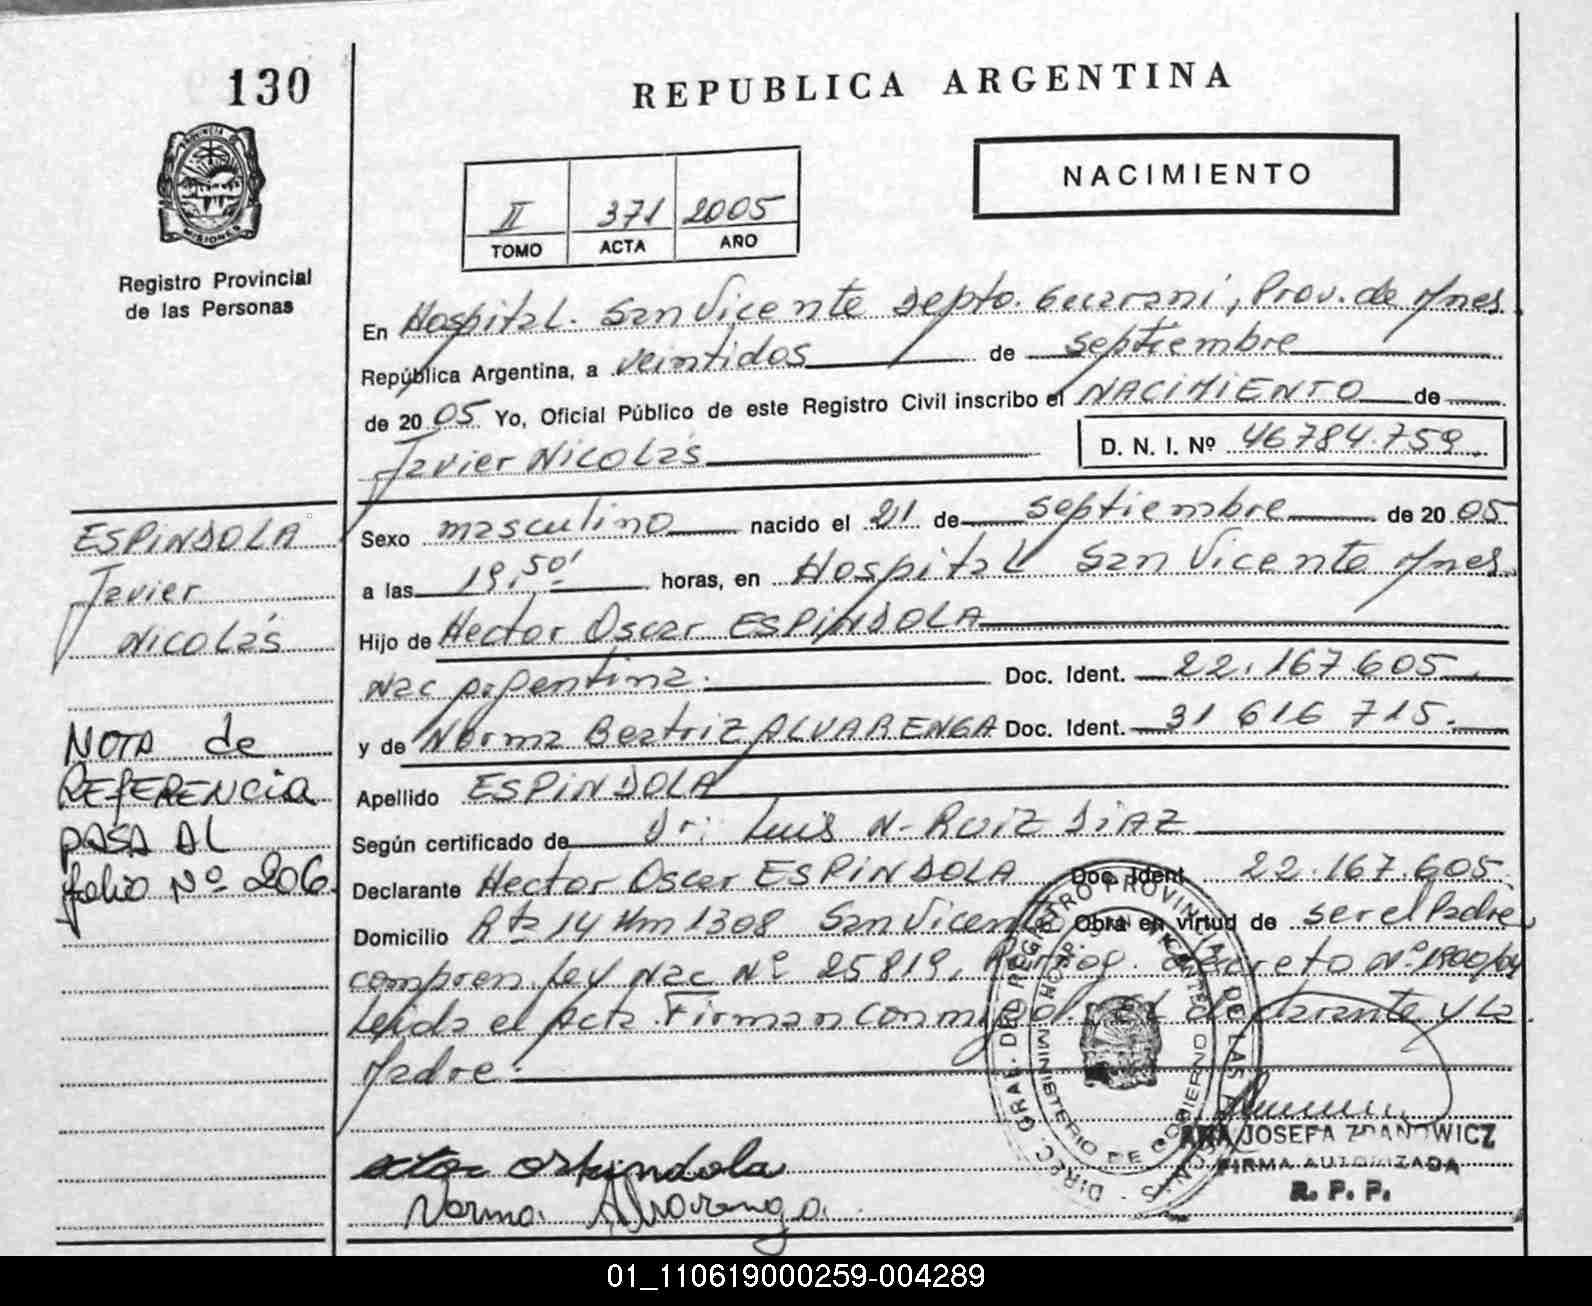 130
REPUBLICA ARGENTINA
PROVINCIA DE
MISIONES
NACIMIENTO
II 371 2005
TOMO ACTA AÑO
Registro Provincial
de las Personas
En Hospital. San Vicente Depto. Guarani, Prov. de Mnes.
República Argentina, a veintidos de septiembre
de 2005 Yo, Oficial Público de este Registro Civil inscribo el NACIMIENTO de
Javier Nicolás D. N. I. Nº 46784.759.
ESPINDOLA
Javier
Nicolás
Sexo masculino nacido el 21 de septiembre de 2005
a las 19,50' horas, en Hospital San Vicente Mnes.
Hijo de Hector Oscar ESPINDOLA
Nac Argentina. Doc. Ident. 22.167.605
y de Norma Beatriz ALVARENGA Doc. Ident. 31 616 715.
NOTA de
REFERENCIA
PASA AL
folio Nº 206
Apellido ESPINDOLA
Según certificado de Dr: Luis N. RUIZ DIAZ
Declarante Hector Oscar ESPINDOLA Doc. Ident. 22.167.605.
Domicilio Rta 14 Km 1308 San Vicente Obra en virtud de ser el Padre
compren. Ley Nac Nº 25819, Prorrog. Decreto Nº 1900/04
Leida el Acta. Firman conmigo. El declarante y La
Madre.
DIREC. GRAL. DEL REGISTRO PROVINCIAL DE LAS PERSONAS
HOSP. SAN VICENTE
MINISTERIO DE GOBIERNO
ector Espindola
Norma Alvarenga
ANA JOSEFA ZDANOWICZ
FIRMA AUTORIZADA
R. P. P.
01_110619000259-004289